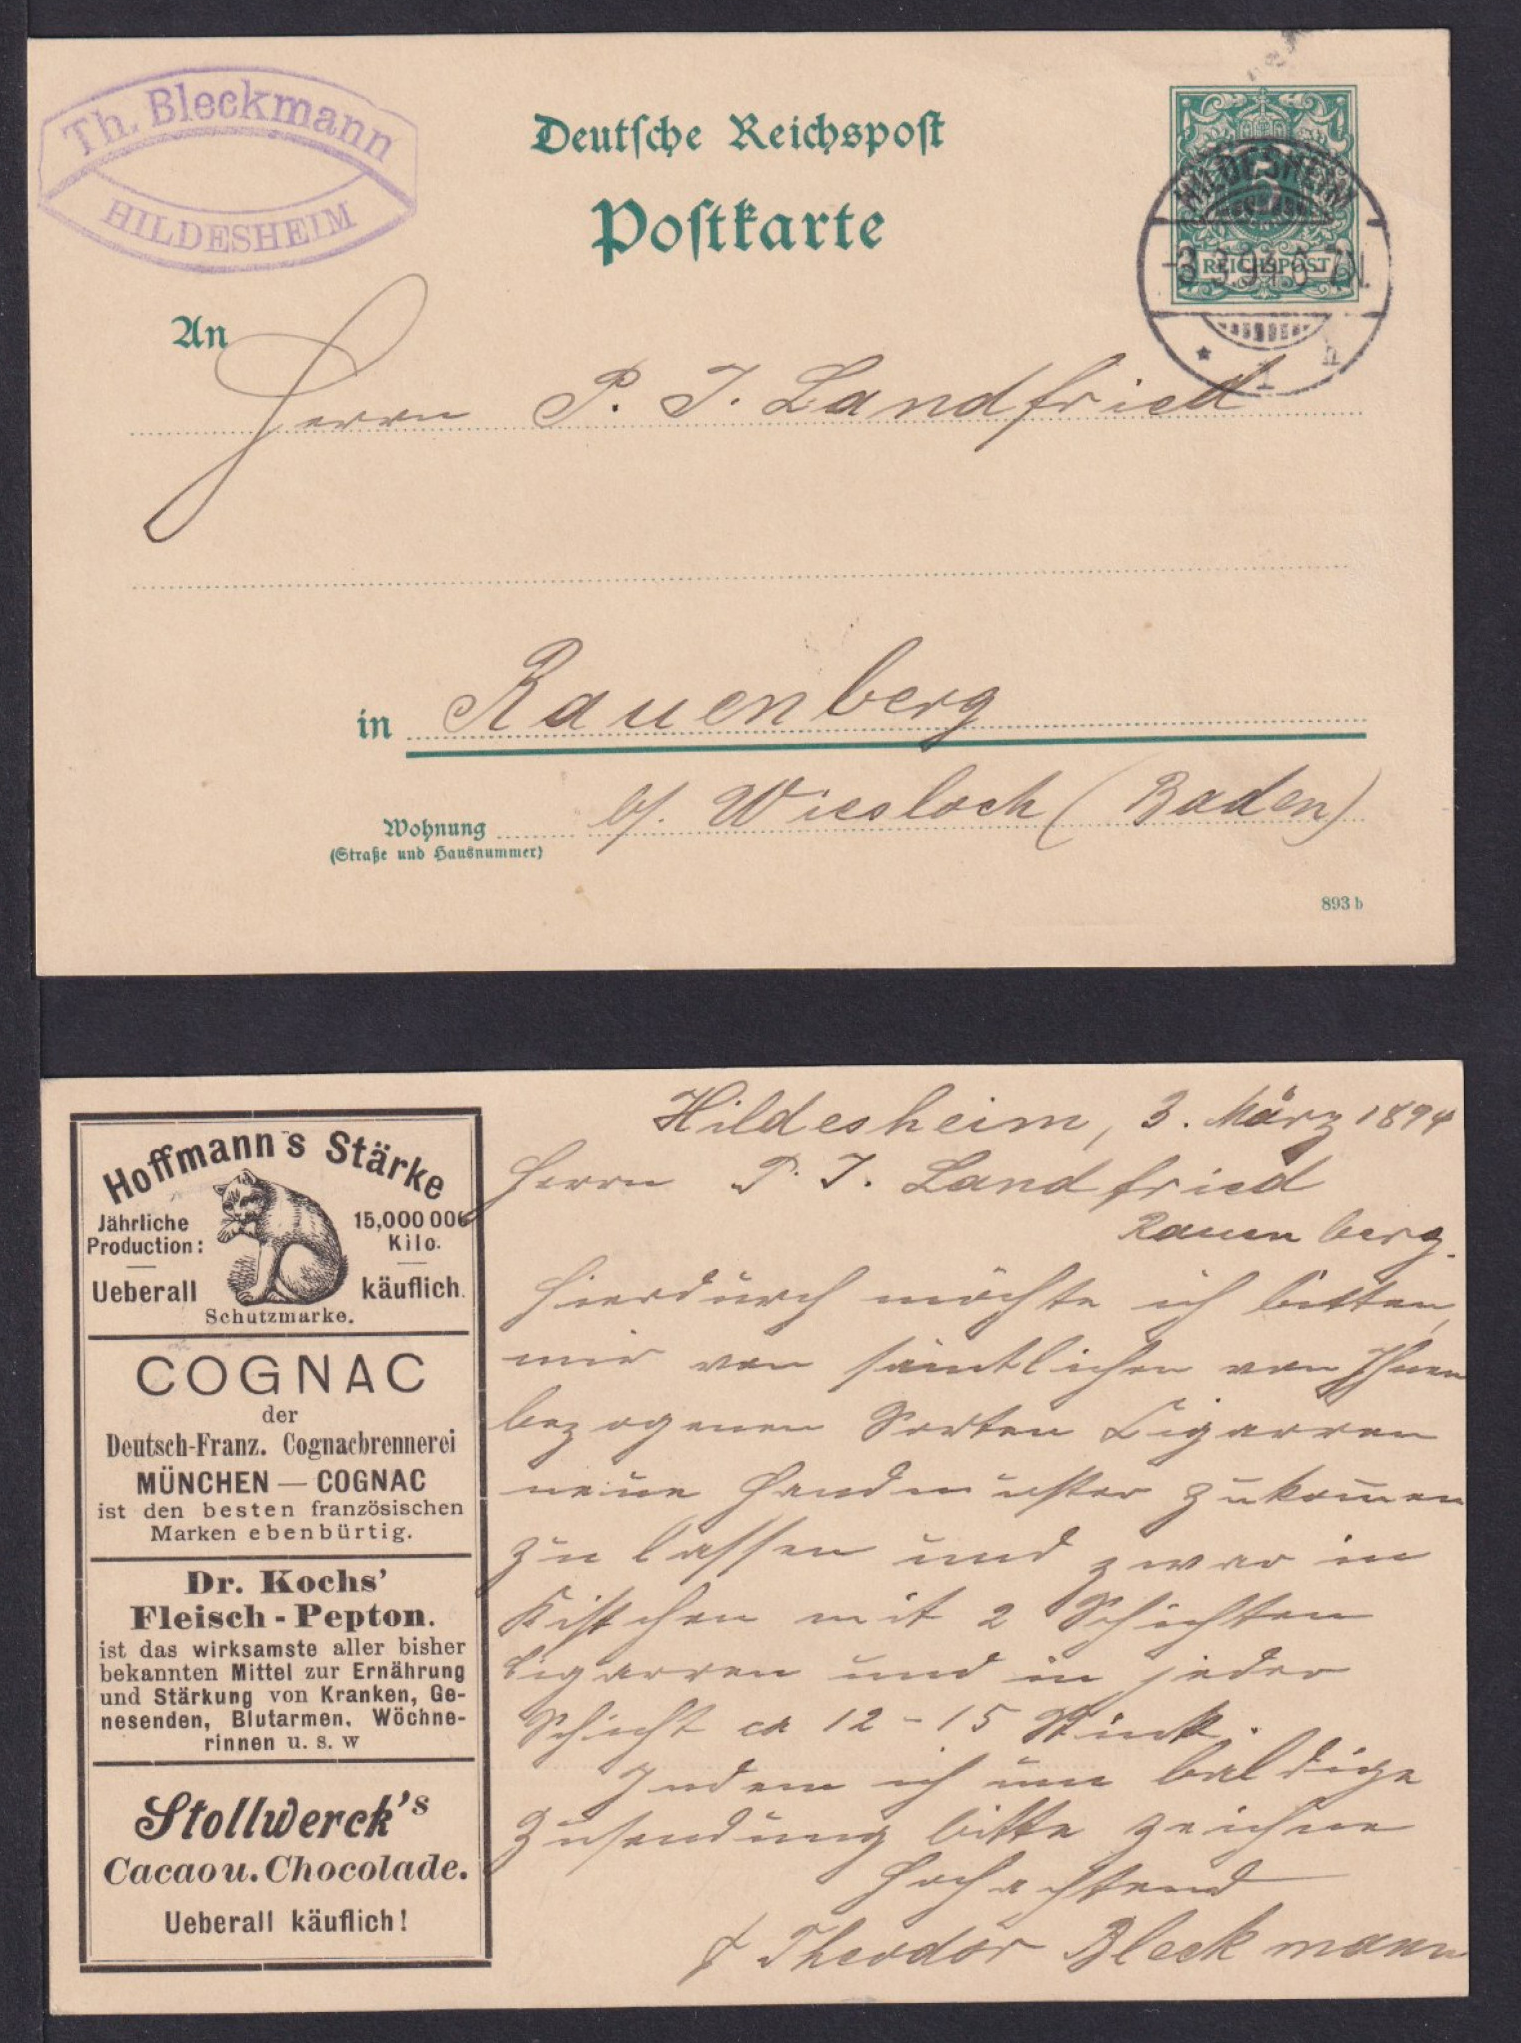 Th. Bleckmann
HILDESHEIM
Deutsche Reichspost
Postkarte
HILDESHEIM
REICHSPOST
An
Herrn P. J. Landfried
in Rauenberg
Wohnung b/. Wiesloch (Baden)
(Straße und Hausnummer)
893 b
Hoffmann's Stärke
Jährliche Production: 15,000 000 Kilo.
Ueberall käuflich.
Schutzmarke.
COGNAC
der
Deutsch-Franz. Cognacbrennerei
MÜNCHEN — COGNAC
ist den besten französischen
Marken ebenbürtig.
Dr. Kochs'
Fleisch-Pepton.
ist das wirksamste aller bisher
bekannten Mittel zur Ernährung
und Stärkung von Kranken, Ge-
nesenden, Blutarmen, Wöchne-
rinnen u. s. w
Stollwerck's
Cacao u. Chocolade.
Ueberall käuflich!
Hildesheim, 3. März 1894
Herrn P. J. Landfried
Rauenberg.
Hierdurch möchte ich bitten,
mir von sämtlichen von Ihnen
bezogenen Sorten Cigarren
neue Handmuster zukommen
zu lassen und zwar in
Kistchen mit 2 Schichten
Cigarren und in jeder
Schicht ca 12-15 Stück.
Indem ich um baldige
Zusendung bitte zeichne
Hochachtend
Theodor Bleckmann